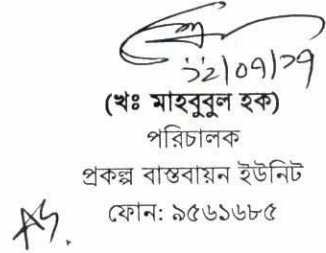 ১২/০৭/১৭
(খঃ মাহবুবুল হক)
পরিচালক
প্রকল্প বাস্তবায়ন ইউনিট
ফোন: ৯৫৬১৬৮৫